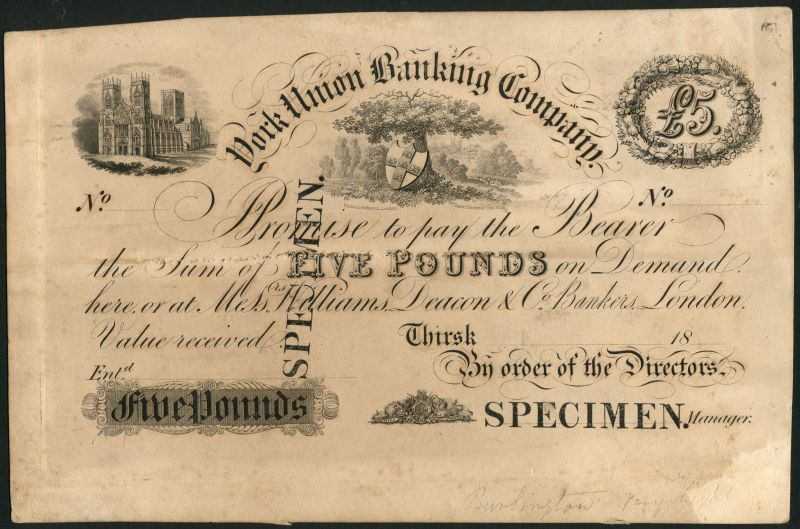 York Union Banking Company.
£5.
No. No.
Promise to pay the Bearer
the Sum of FIVE POUNDS on Demand
here, or at Messrs. Williams, Deacon & Co. Bankers, London.
Value received.
Thirsk 18
Entd.
By order of the Directors.
Five Pounds
SPECIMEN. Manager.
SPECIMEN.
Burlington